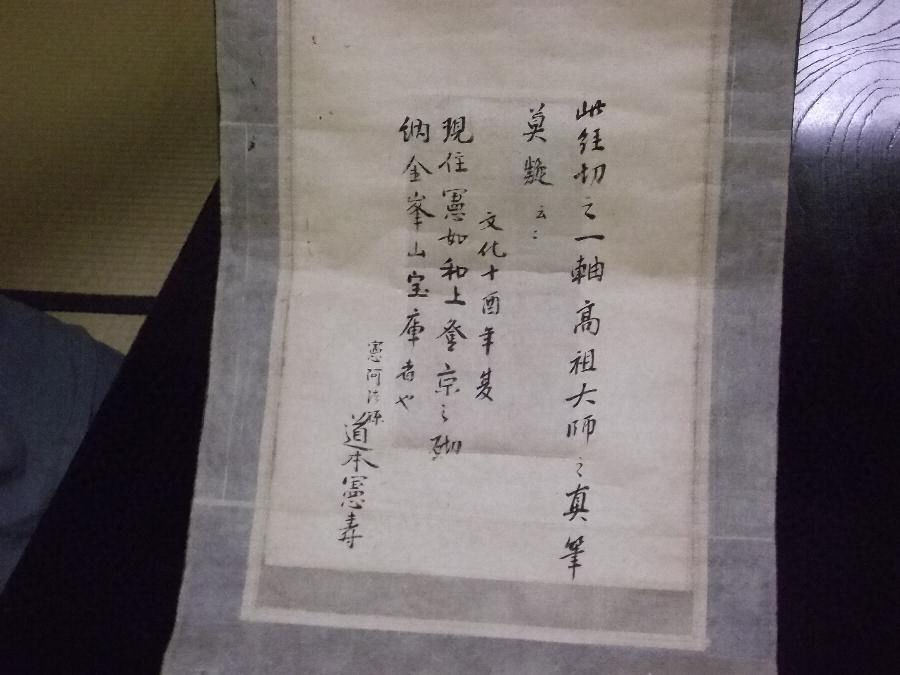 此経切之一軸高祖大師之真筆
莫疑云〻
文化十酉年夏
現住憲如和上登京之砌
納金峯山宝庫者也
憲阿
道本憲寿